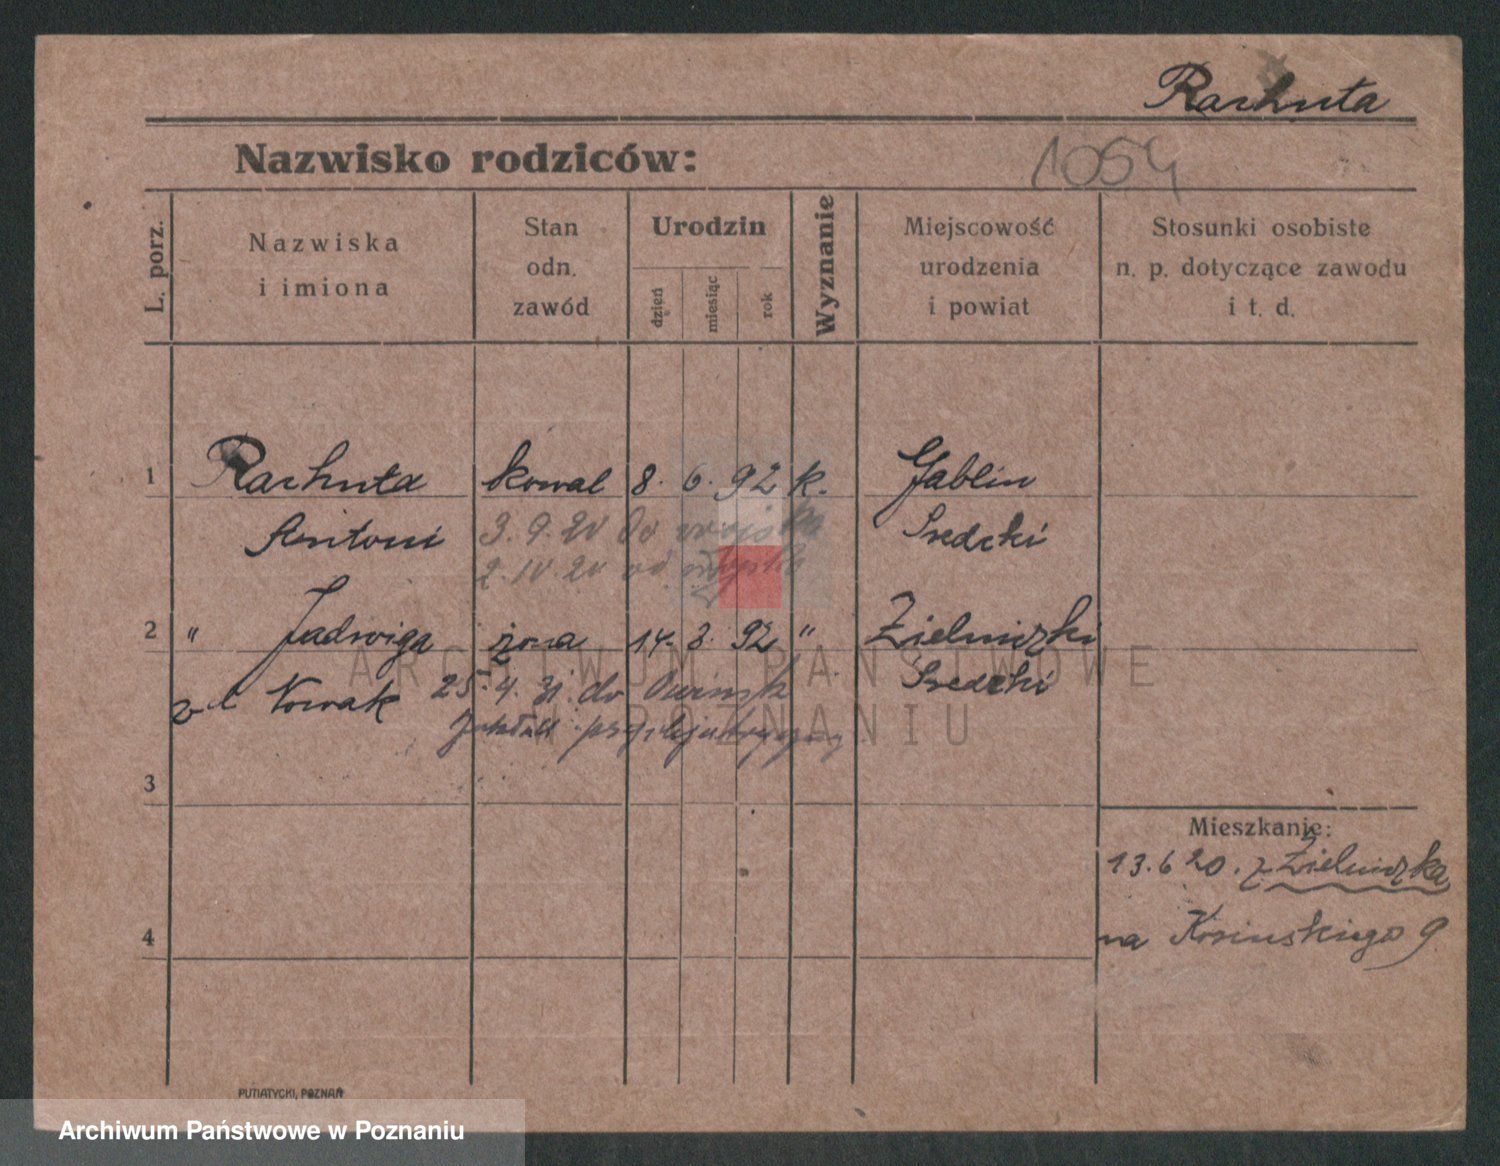 Rachuta
Nazwisko rodziców:
1054
L. porz.
Nazwiska
i imiona
Stan
odn.
zawód
Urodzin
dzień
miesiąc
rok
Wyznanie
Miejscowość
urodzenia
i powiat
Stosunki osobiste
n. p. dotyczące zawodu
i t. d.
1 Rachuta kowal 8. 6. 92 k. Jablin
Antoni Sredzki
3. 9. 20 do wojska
2. IV. 20 od wojska
2 " Jadwiga żona 14. 3. 92 " Zielniczki
z d Nowak Sredzki
25. 4. 31. do Owinsk
3
Mieszkanie:
13. 6 20. z Zielniczka
4 na Kosinskiego 9
ARCHIWUM PAŃSTWOWE
W POZNANIU
PUTIATYCKI, POZNAŃ
Archiwum Państwowe w Poznaniu